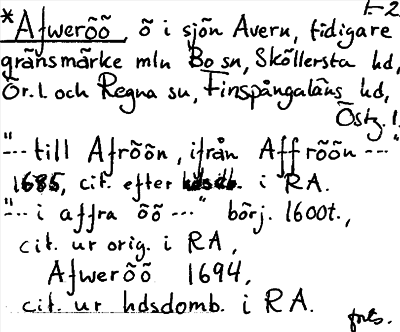 1-2
*Afweröö ö i sjön Avern, tidigare
gränsmärke mln Bo sn, Sköllersta hd,
Ör.l. och Regna sn, Finspångaläns hd,
Östg.l.
"--- till Afröön, ifrån Affröön --- "
1685, cit. efter i RA.
"--- i affra öö ---" börj. 1600t.,
cit. ur orig. i RA,
Afweröö 1694,
cit. ur hdsdomb. i RA.
forts.